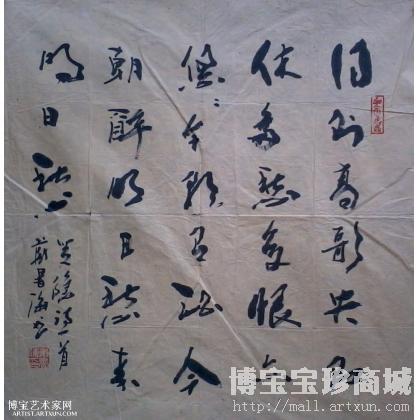 得即高歌失即
休多愁多恨亦
悠悠今朝有酒今
朝醉明日愁来
明日愁
罗隐诗一首
海书
博宝艺术家网
ARTIST.ARTXUN.COM
博宝宝珍商城
http://mall.artxun.com